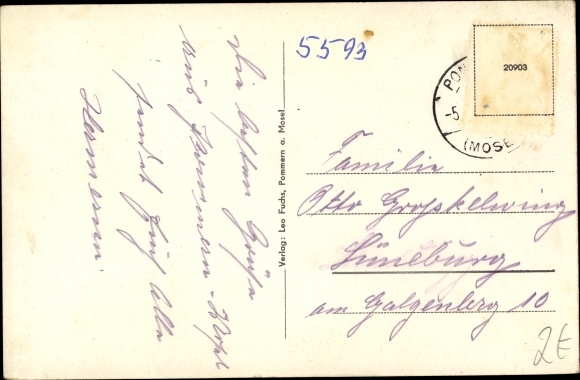 Die besten Grüße
aus Pommern-Mosel
sendet Euch Alle
Hermann.
Verlag: Leo Fuchs, Pommern a. Mosel
5593
20903
POM
-5
(MOSE
Familie
Otto Grosskelwing
Lüneburg
am Galgenberg 10
2€